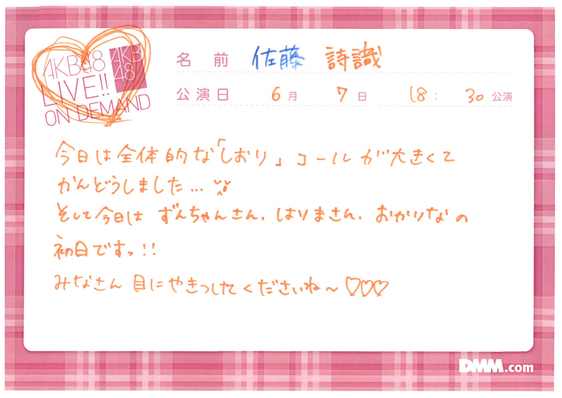 AKB48
LIVE!!
ON DEMAND
AKB
48
名前 佐藤 詩識
公演日 6月 7日 18:30公演
今日は全体的な「しおり」コールが大きくて
かんどうしました...
そして今日は ずんちゃんさん、はりまさん、おかりなの
初日ですっ!!
みなさん 目にやきつけてくださいね〜♡♡♡
DMM.com